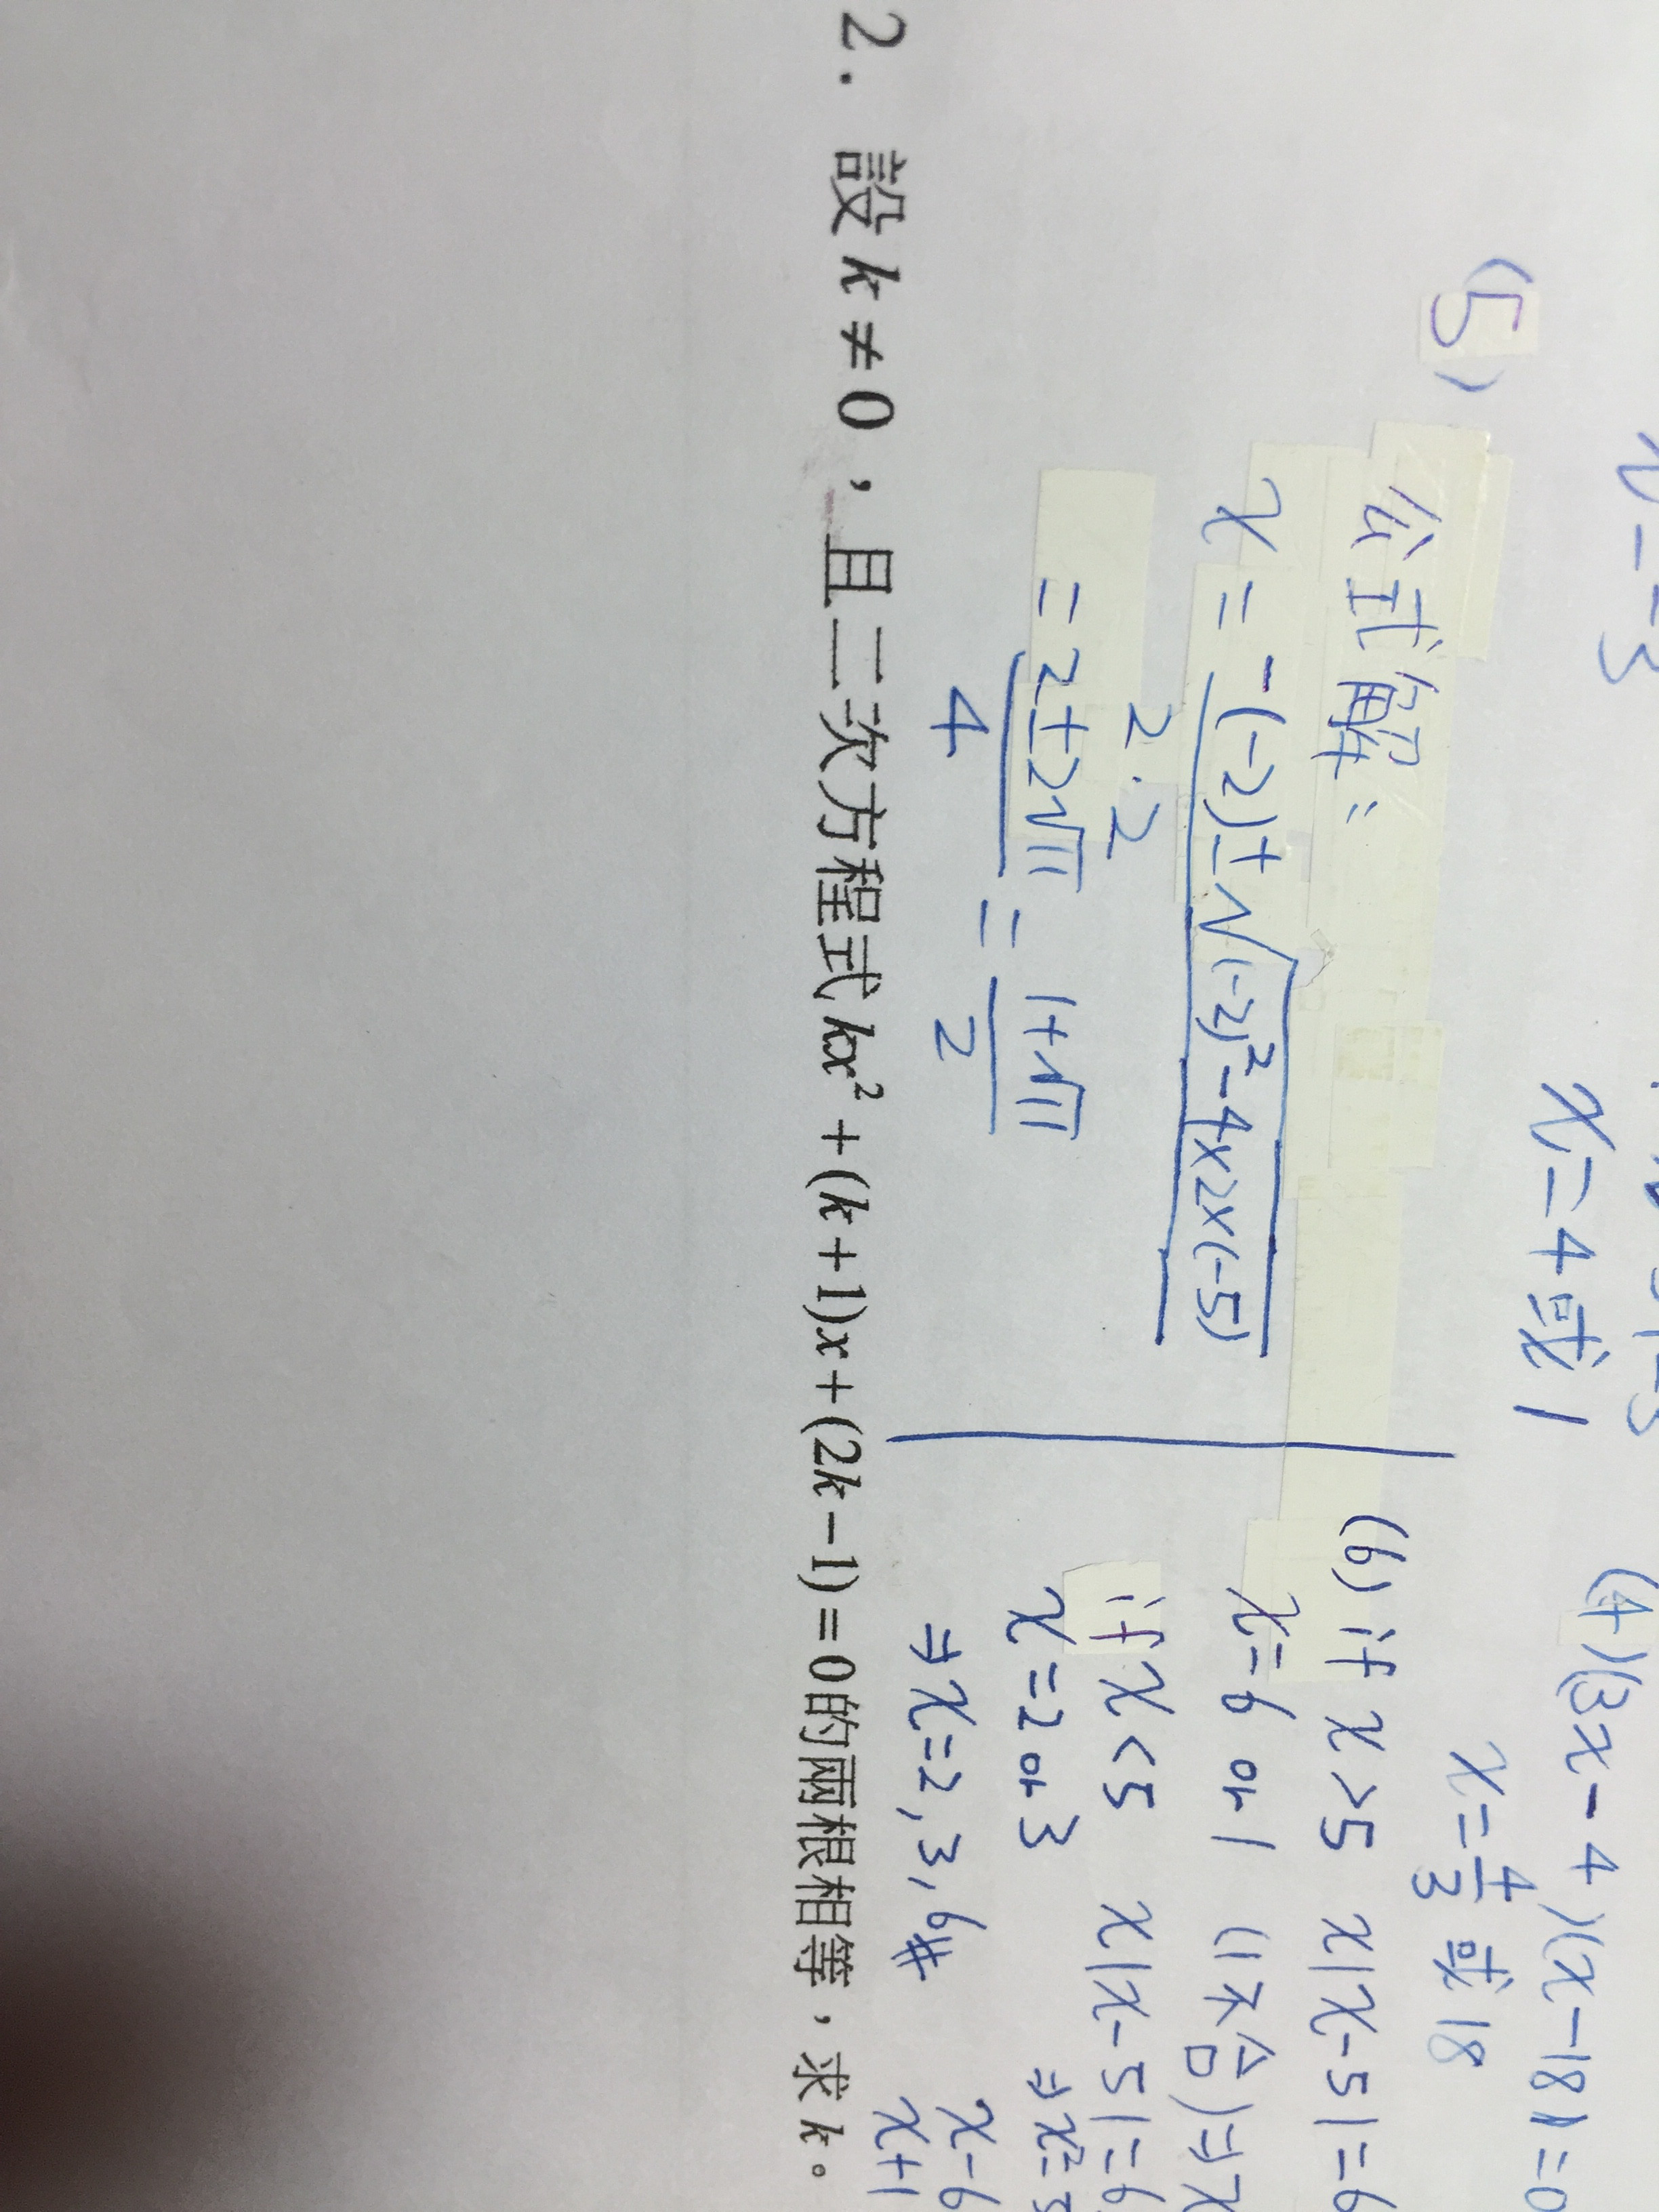 x=4或1
(4)(3x-4)(x-18)=0
x=4/3 或 18
(5) 公式解:
x = (-(-2)±√((-2)²-4×2×(-5)))/(2·2)
= (2±2√11)/4 = (1+√11)/2
(6) if x>5 x|x-5|=6
x=6 or 1 (1不合)
if x<5 x|x-5|=6
x=2 or 3
⇒x=2,3,6#
x-6
x+1
2. 設k≠0，且二次方程式kx²+(k+1)x+(2k-1)=0的兩根相等，求k。